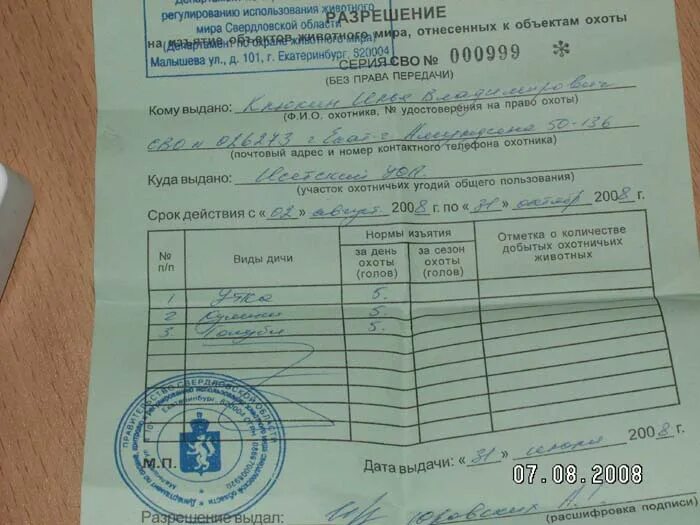 регулированию использования животного
мира Свердловской области
(Департамент по охране животного мира)
Малышева ул., д. 101, г. Екатеринбург, 620004
РАЗРЕШЕНИЕ
на изъятие объектов животного мира, отнесенных к объектам охоты
СЕРИЯ СВО № 000999 *
(БЕЗ ПРАВА ПЕРЕДАЧИ)
Кому выдано: Илья Владимирович
(Ф.И.О. охотника, № удостоверения на право охоты)
СВО № 026273 г. Екат-г 50-136
(почтовый адрес и номер контактного телефона охотника)
Куда выдано: Исетский
(участок охотничьих угодий общего пользования)
Срок действия с « 02 » август 2008 г. по « 31 » октябр 2008 г.
№ п/п
Виды дичи
Нормы изъятия
за день охоты (голов)
за сезон охоты (голов)
Отметка о количестве добытых охотничьих животных
1 Утка 5.
2 Кулики 5.
3 Голуби 5.
ПРАВИТЕЛЬСТВО СВЕРДЛОВСКОЙ ОБЛАСТИ
М.П.
Дата выдачи: « 31 » 2008 г.
07.08.2008
Разрешение выдал:
(расшифровка подписи)